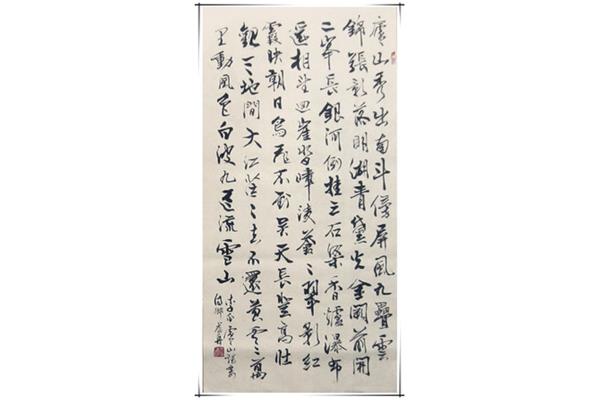 廬山秀出南斗傍屏風九疊雲
錦張影落明湖青黛光金闕前開
二峯長銀河倒挂三石梁香爐瀑布
遙相望迴崖沓嶂凌蒼々翠影紅
霞映朝日鳥飛不到吳天長登高壯
觀天地間大江茫々去不還黃雲萬
里動風色白波九道流雪山
廬山謠寄